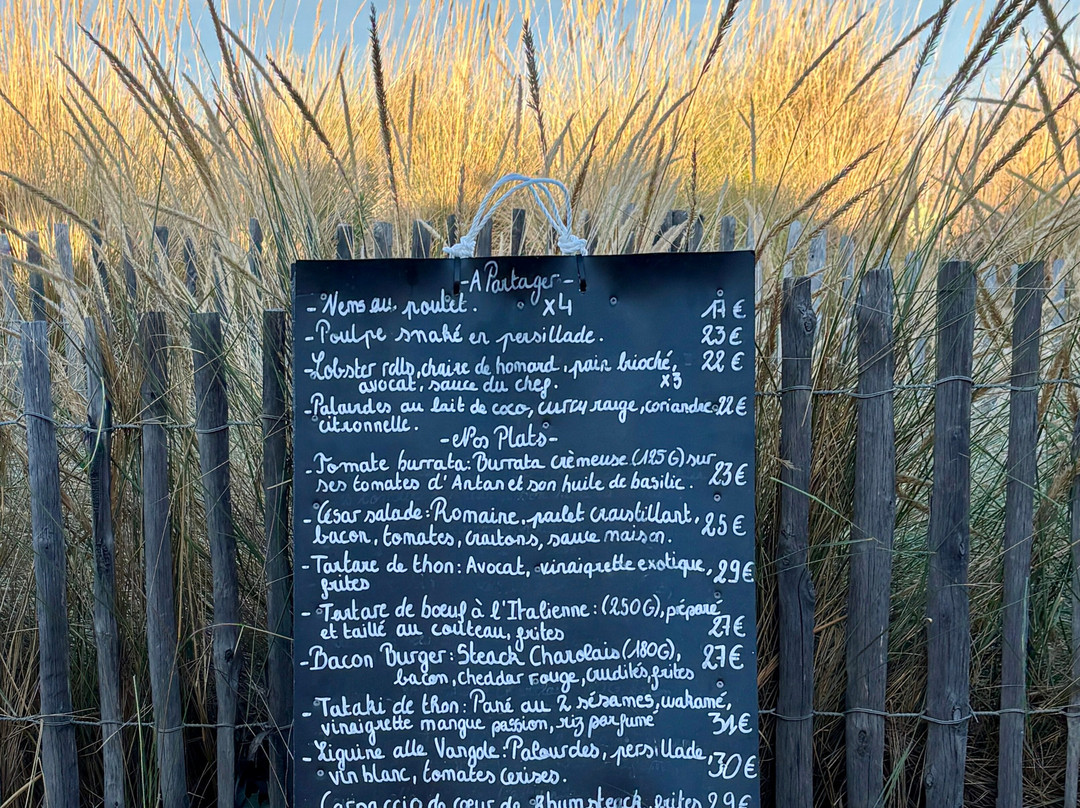 -A Partager-
- Nems au poulet. x4 17€
- Poulpe snaké en persillade. 23€
- Lobster rolls, chaire de homard, pain brioché, 22€
avocat, sauce du chef. x3
- Palourdes au lait de coco, curry rouge, coriandre 22€
citronnelle.
-Nos Plats-
- Tomate burrata: Burrata crèmeuse (125G) sur
ses tomates d'Antan et son huile de basilic. 23€
- César salade: Romaine, poulet croustillant,
bacon, tomates, croutons, sauce maison. 25€
- Tartare de thon: Avocat, vinaigrette exotique, 29€
frites
- Tartare de boeuf à l'Italienne: (250G), préparé
et taillé au couteau, frites 27€
- Bacon Burger: Steack Charolais (180G), 27€
bacon, cheddar rouge, crudités, frites
- Tataki de thon: Pané au 2 sésames, wakamé,
vinaigrette mangue passion, riz parfumé 31€
- Liguine alle Vangole: Palourdes, persillade,
vin blanc, tomates cerises. 30€
Carpaccio de coeur de Rhumsteack, frites 29€